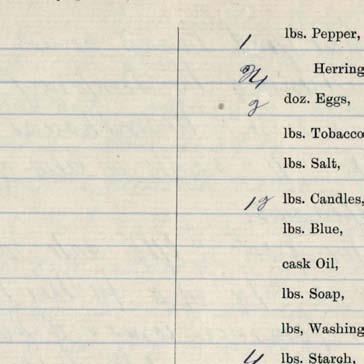 1 lbs. Pepper,
24 Herring
2 doz. Eggs,
lbs. Tobacco
lbs. Salt,
12 lbs. Candles,
lbs. Blue,
cask Oil,
lbs. Soap,
lbs, Washing
4 lbs. Starch,